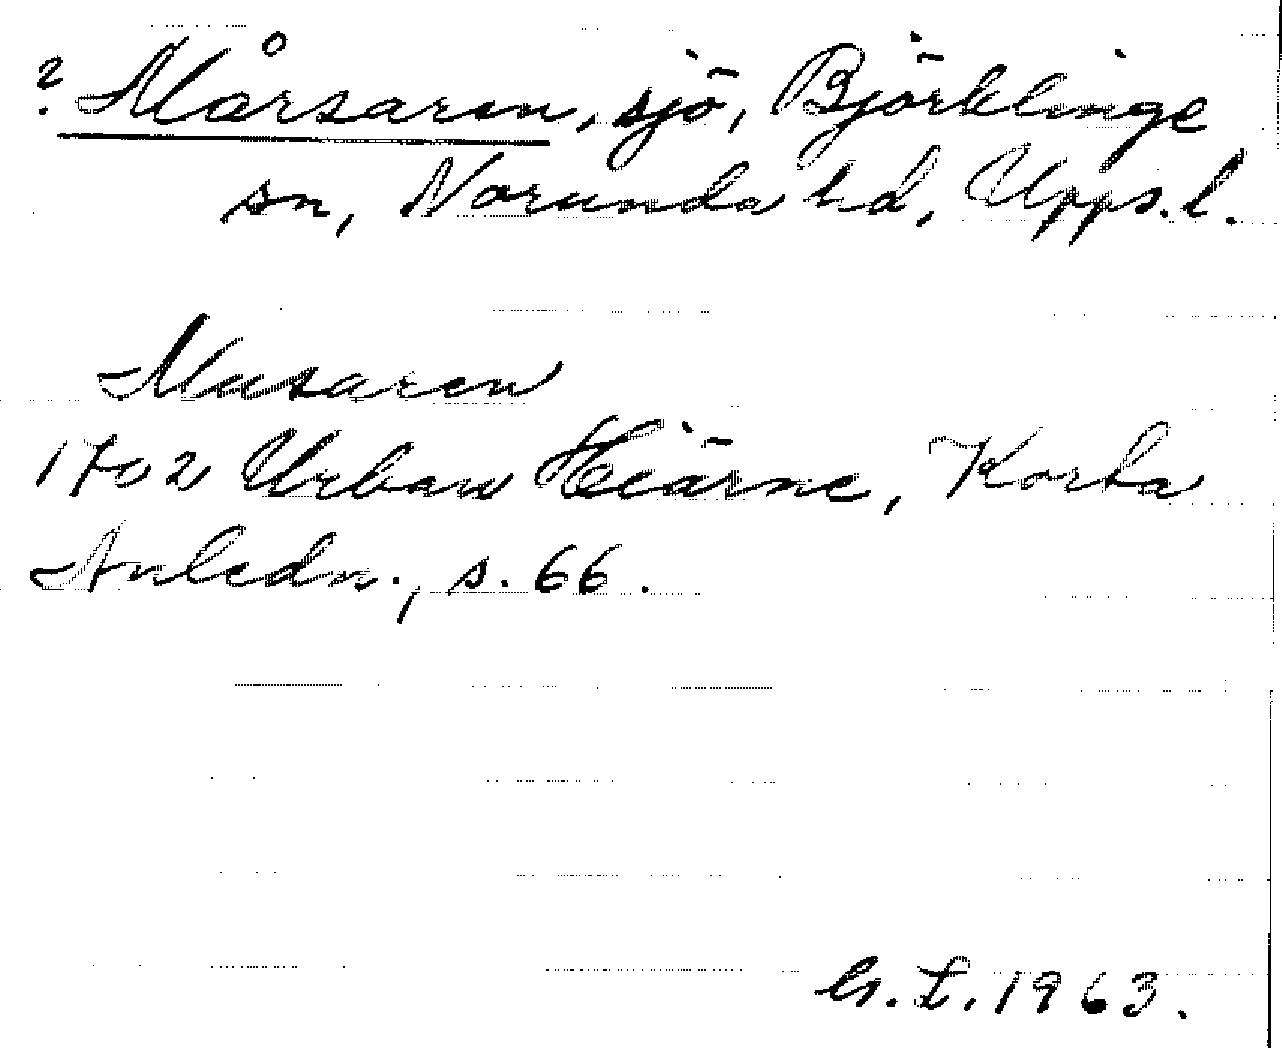 ? Mårsaren, sjö, Björklinge
sn, Norunda hd, Upps. l.
Musaren
1702 Urban Heärne, Korta
Anledn., s. 66.
G. L. 1963.